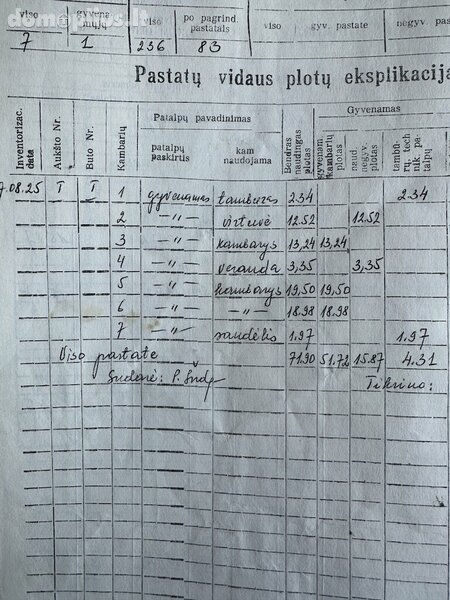 domoplius.lt
viso gyvena- mųjų viso po pagrind. pastatais viso gyv. pastate negyv. pa
7 1 236 83
Pastatų vidaus plotų eksplikacija
Inventorizac. data Aukšto Nr. Buto Nr. Kambarių Patalpų pavadinimas Gyvenamas
patalpų paskirtis kam naudojama Bendras naudingas plotas gyvenam. kambarių plotas naud. negyv. plotas tambū- rų, tech nik. pa- talpų
7.08.25 I I 1 gyvenamas tambūras 2.34 2.34
2 —"— virtuvė 12.52 12.52
3 —"— kambarys 13,24 13,24
4 —"— veranda 3,35 3,35
5 —"— kambarys 19,50 19,50
6 —"— —"— 18.98 18.98
7 —"— sandėlis 1.97 1.97
Viso pastate 71.90 51,72 15.87 4.31
Sudarė: P. Tikrino: